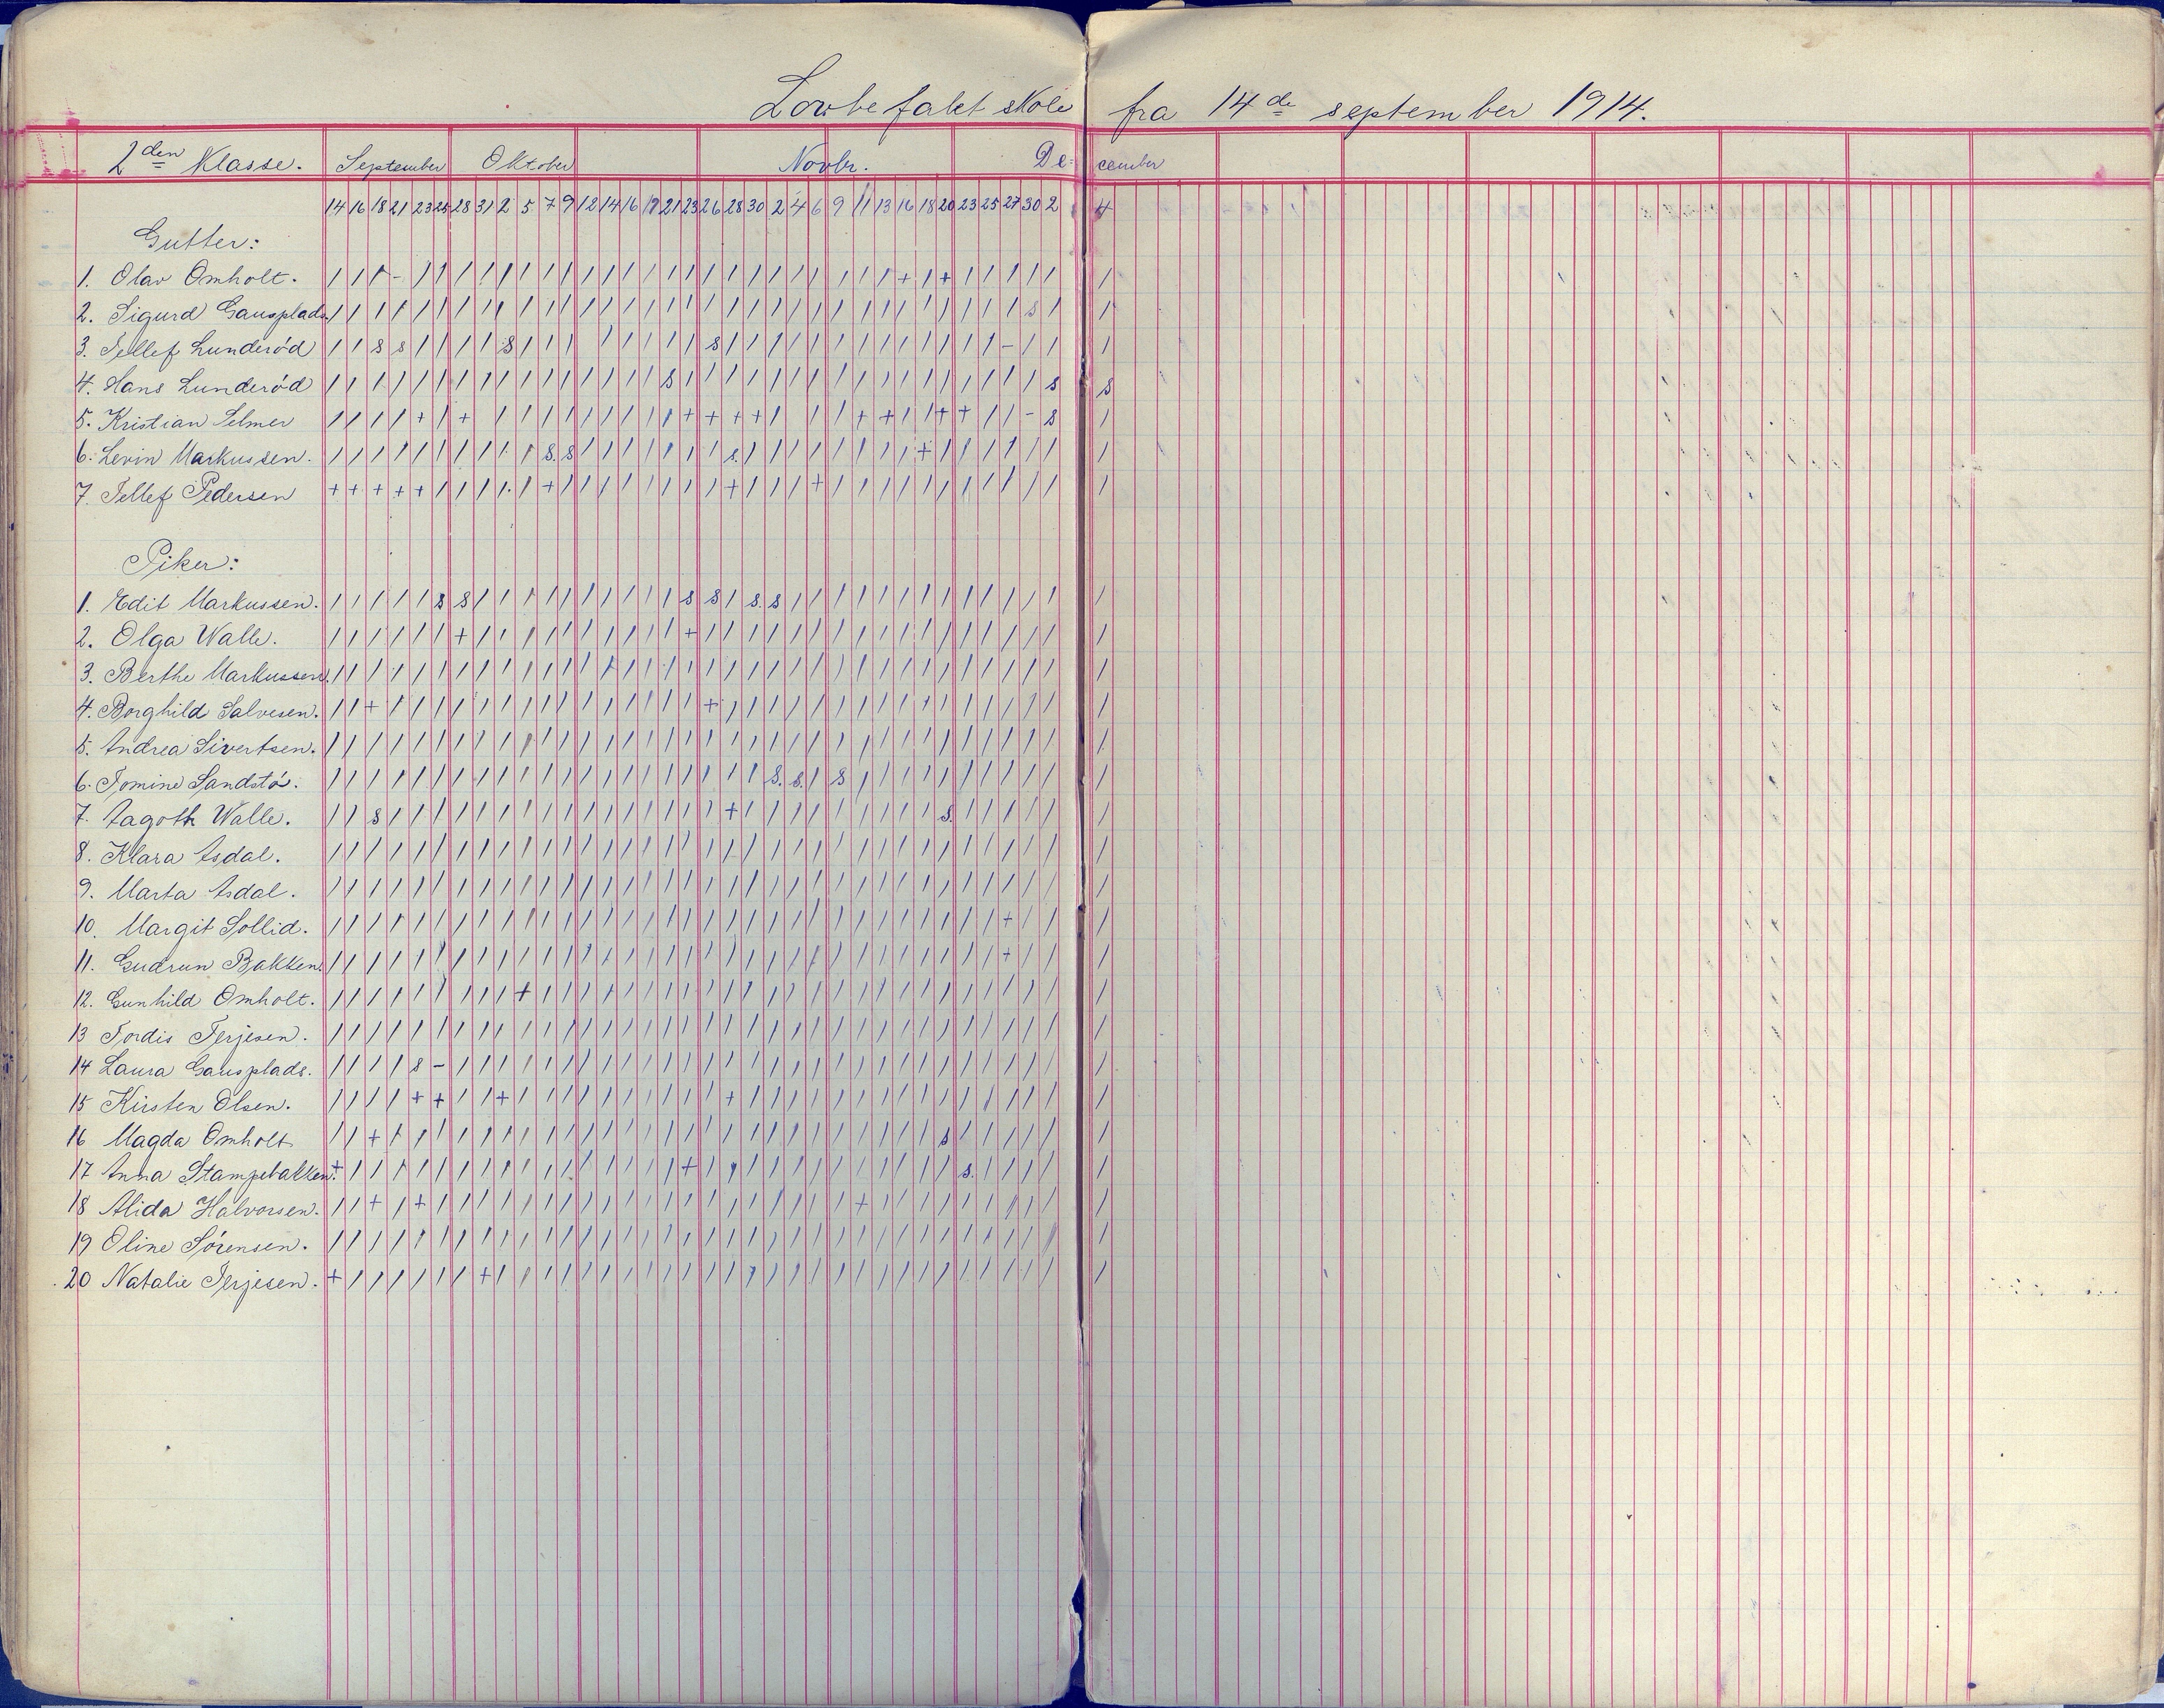 Lovbefalet skole fra 14de september 1914.
2den Klasse. September Oktober Novbr. December
14 16 18 21 23 25 28 31 2 5 7 9 12 14 16 19 21 23 26 28 30 2 4 6 9 11 13 16 18 20 23 25 27 30 2 4
Gutter:
1. Olav Omholt.
2. Sigurd Gausplads.
3. Tellef Lunderød
4. Hans Lunderød
5. Kristian Selmer
6. Levin Markussen.
7. Tellef Pedersen
Piker:
1. Edit Markussen.
2. Olga Walle.
3. Berthe Markussen.
4. Borghild Salvesen.
5. Andrea Sivertsen.
6. Tomine Sandstø.
7. Aagoth Walle.
8. Klara Asdal.
9. Marta Asdal.
10. Margit Sollid.
11. Gudrun Bakken.
12. Gunhild Omholt.
13 Tordis Terjesen.
14 Laura Gausplads.
15 Kirsten Olsen.
16 Magda Omholt
17 Anna Stampebakken.
18 Alida Halvorsen.
19 Oline Sørensen.
20 Natalie Terjesen.